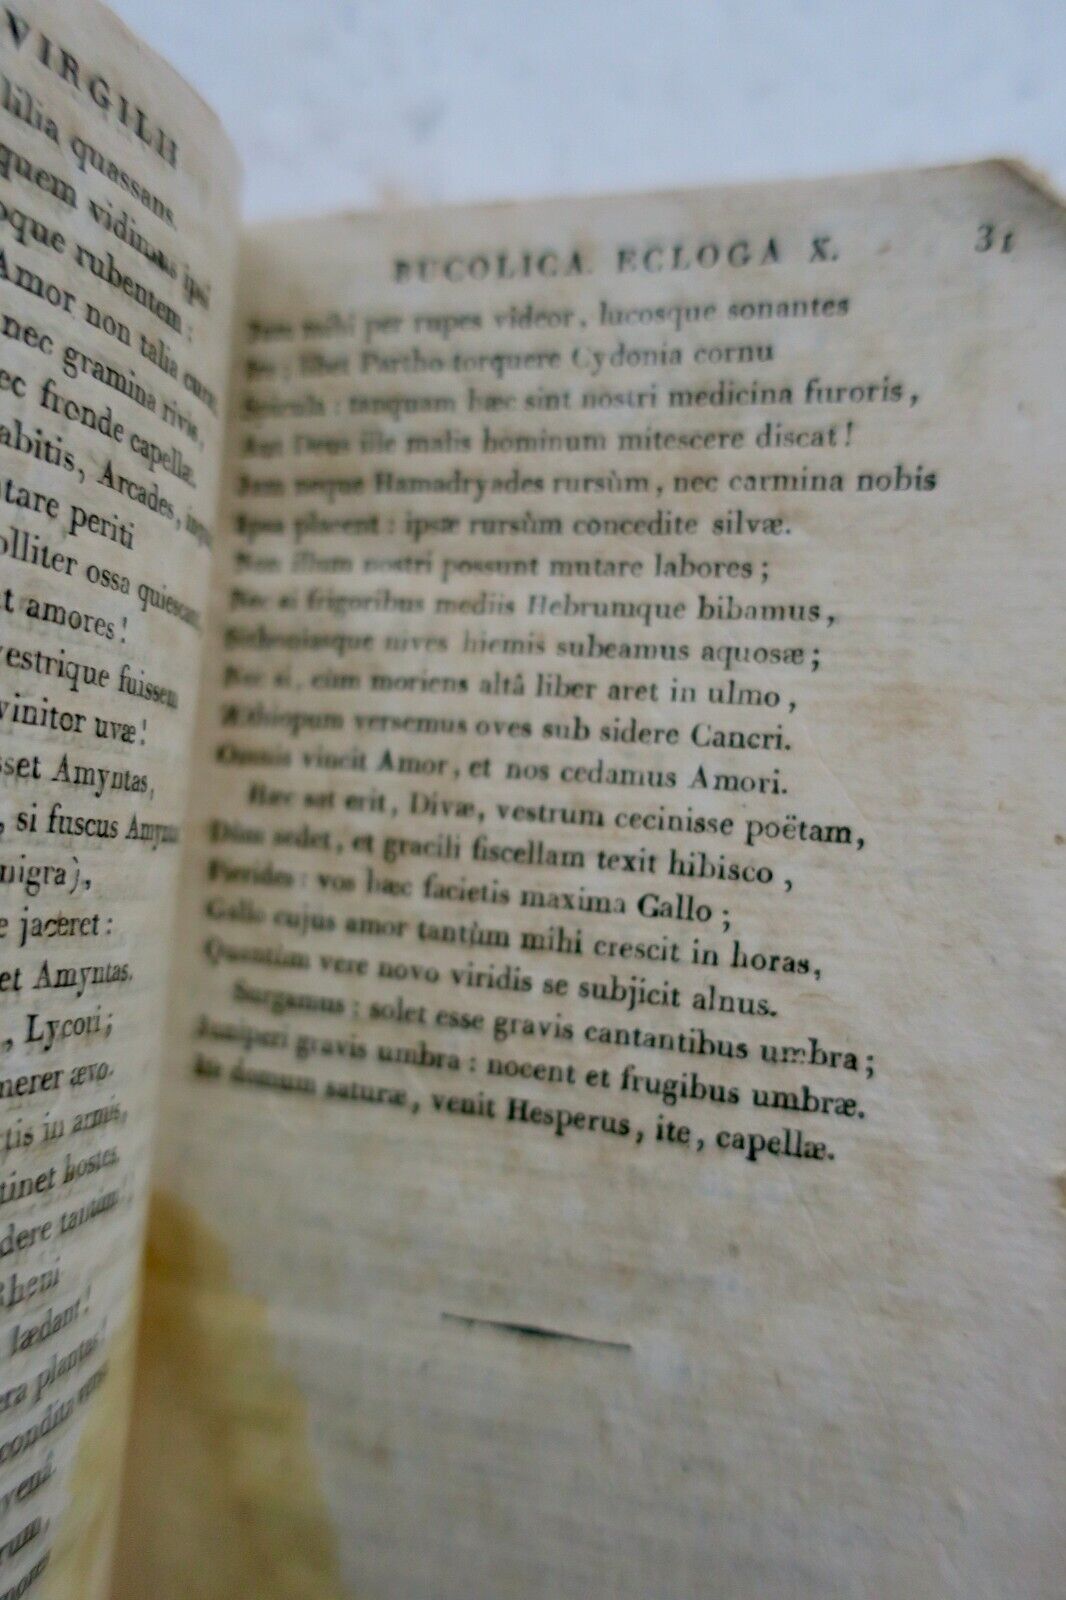 VIRGILII
lilia quassans.
quem vidimus ipsi
oque rubentem:
Amor non talia curat,
nec gramina rivis,
ec fronde capellæ.
abitis, Arcades,
tare periti
olliter ossa quiescant,
t amores!
estrique fuissem
vinitor uvæ!
sset Amyntas,
, si fuscus Amyntas
nigra),
e jaceret:
et Amyntas.
, Lycori;
merer ævo.
tis in armis,
tinet hostes.
dere tantùm
Rheni
lædant!
era plantas!
condita versu
rum,
BUCOLICA. ECLOGA X. 31
Jam mihi per rupes videor, lucosque sonantes
Ire; libet Partho torquere Cydonia cornu
Spicula: tanquam hæc sint nostri medicina furoris,
Aut Deus ille malis hominum mitescere discat!
Jam neque Hamadryades rursùm, nec carmina nobis
Ipsa placent: ipsæ rursùm concedite silvæ.
Non illum nostri possunt mutare labores;
Nec si frigoribus mediis Hebrumque bibamus,
Sithoniasque nives hiemis subeamus aquosæ;
Nec si, cùm moriens altâ liber aret in ulmo,
Æthiopum versemus oves sub sidere Cancri.
Omnia vincit Amor, et nos cedamus Amori.
Hæc sat erit, Divæ, vestrum cecinisse poëtam,
Dùm sedet, et gracili fiscellam texit hibisco,
Pierides: vos hæc facietis maxima Gallo;
Gallo cujus amor tantùm mihi crescit in horas,
Quantùm vere novo viridis se subjicit alnus.
Surgamus: solet esse gravis cantantibus umbra;
Juniperi gravis umbra: nocent et frugibus umbræ.
Ite domum saturæ, venit Hesperus, ite, capellæ.